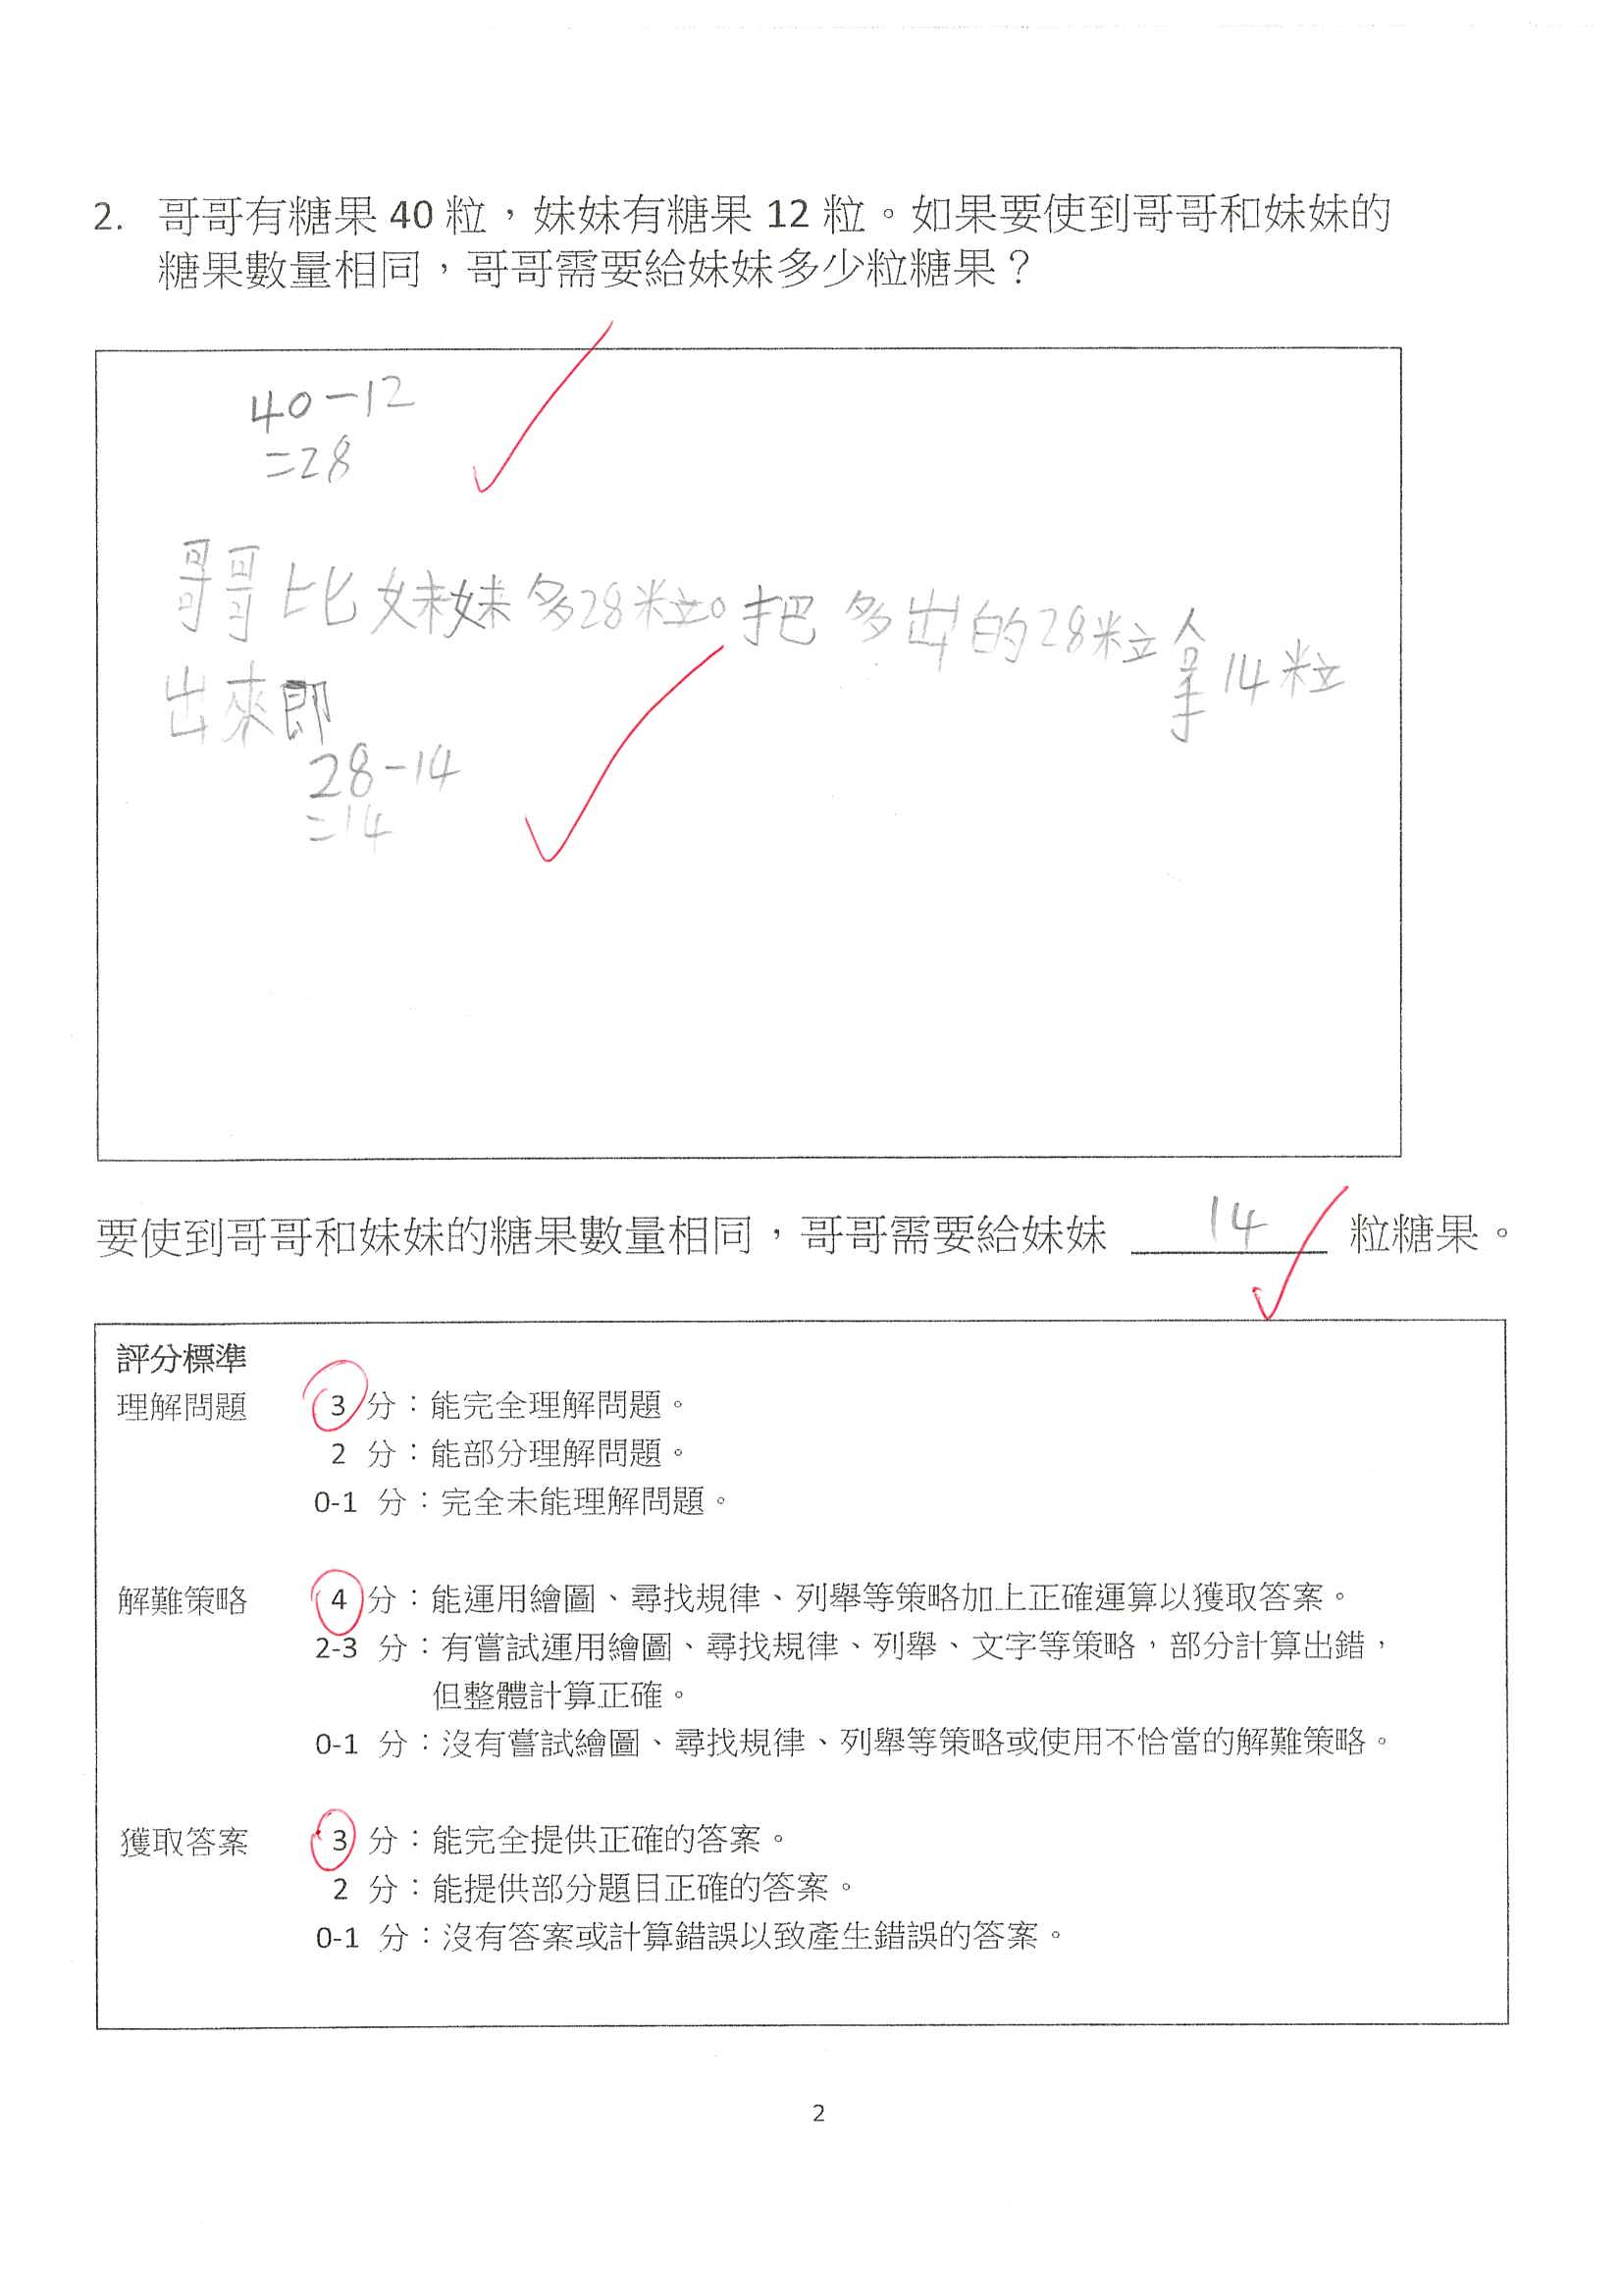 2. 哥哥有糖果 40 粒，妹妹有糖果 12 粒。如果要使到哥哥和妹妹的
糖果數量相同，哥哥需要給妹妹多少粒糖果？
40-12
=28
哥哥比妹妹多28粒。把多出的28粒拿14粒
出來即
28-14
=14
要使到哥哥和妹妹的糖果數量相同，哥哥需要給妹妹 14 粒糖果。
評分標準
理解問題 3 分：能完全理解問題。
2 分：能部分理解問題。
0-1 分：完全未能理解問題。
解難策略 4 分：能運用繪圖、尋找規律、列舉等策略加上正確運算以獲取答案。
2-3 分：有嘗試運用繪圖、尋找規律、列舉、文字等策略，部分計算出錯，
但整體計算正確。
0-1 分：沒有嘗試繪圖、尋找規律、列舉等策略或使用不恰當的解難策略。
獲取答案 3 分：能完全提供正確的答案。
2 分：能提供部分題目正確的答案。
0-1 分：沒有答案或計算錯誤以致產生錯誤的答案。
2